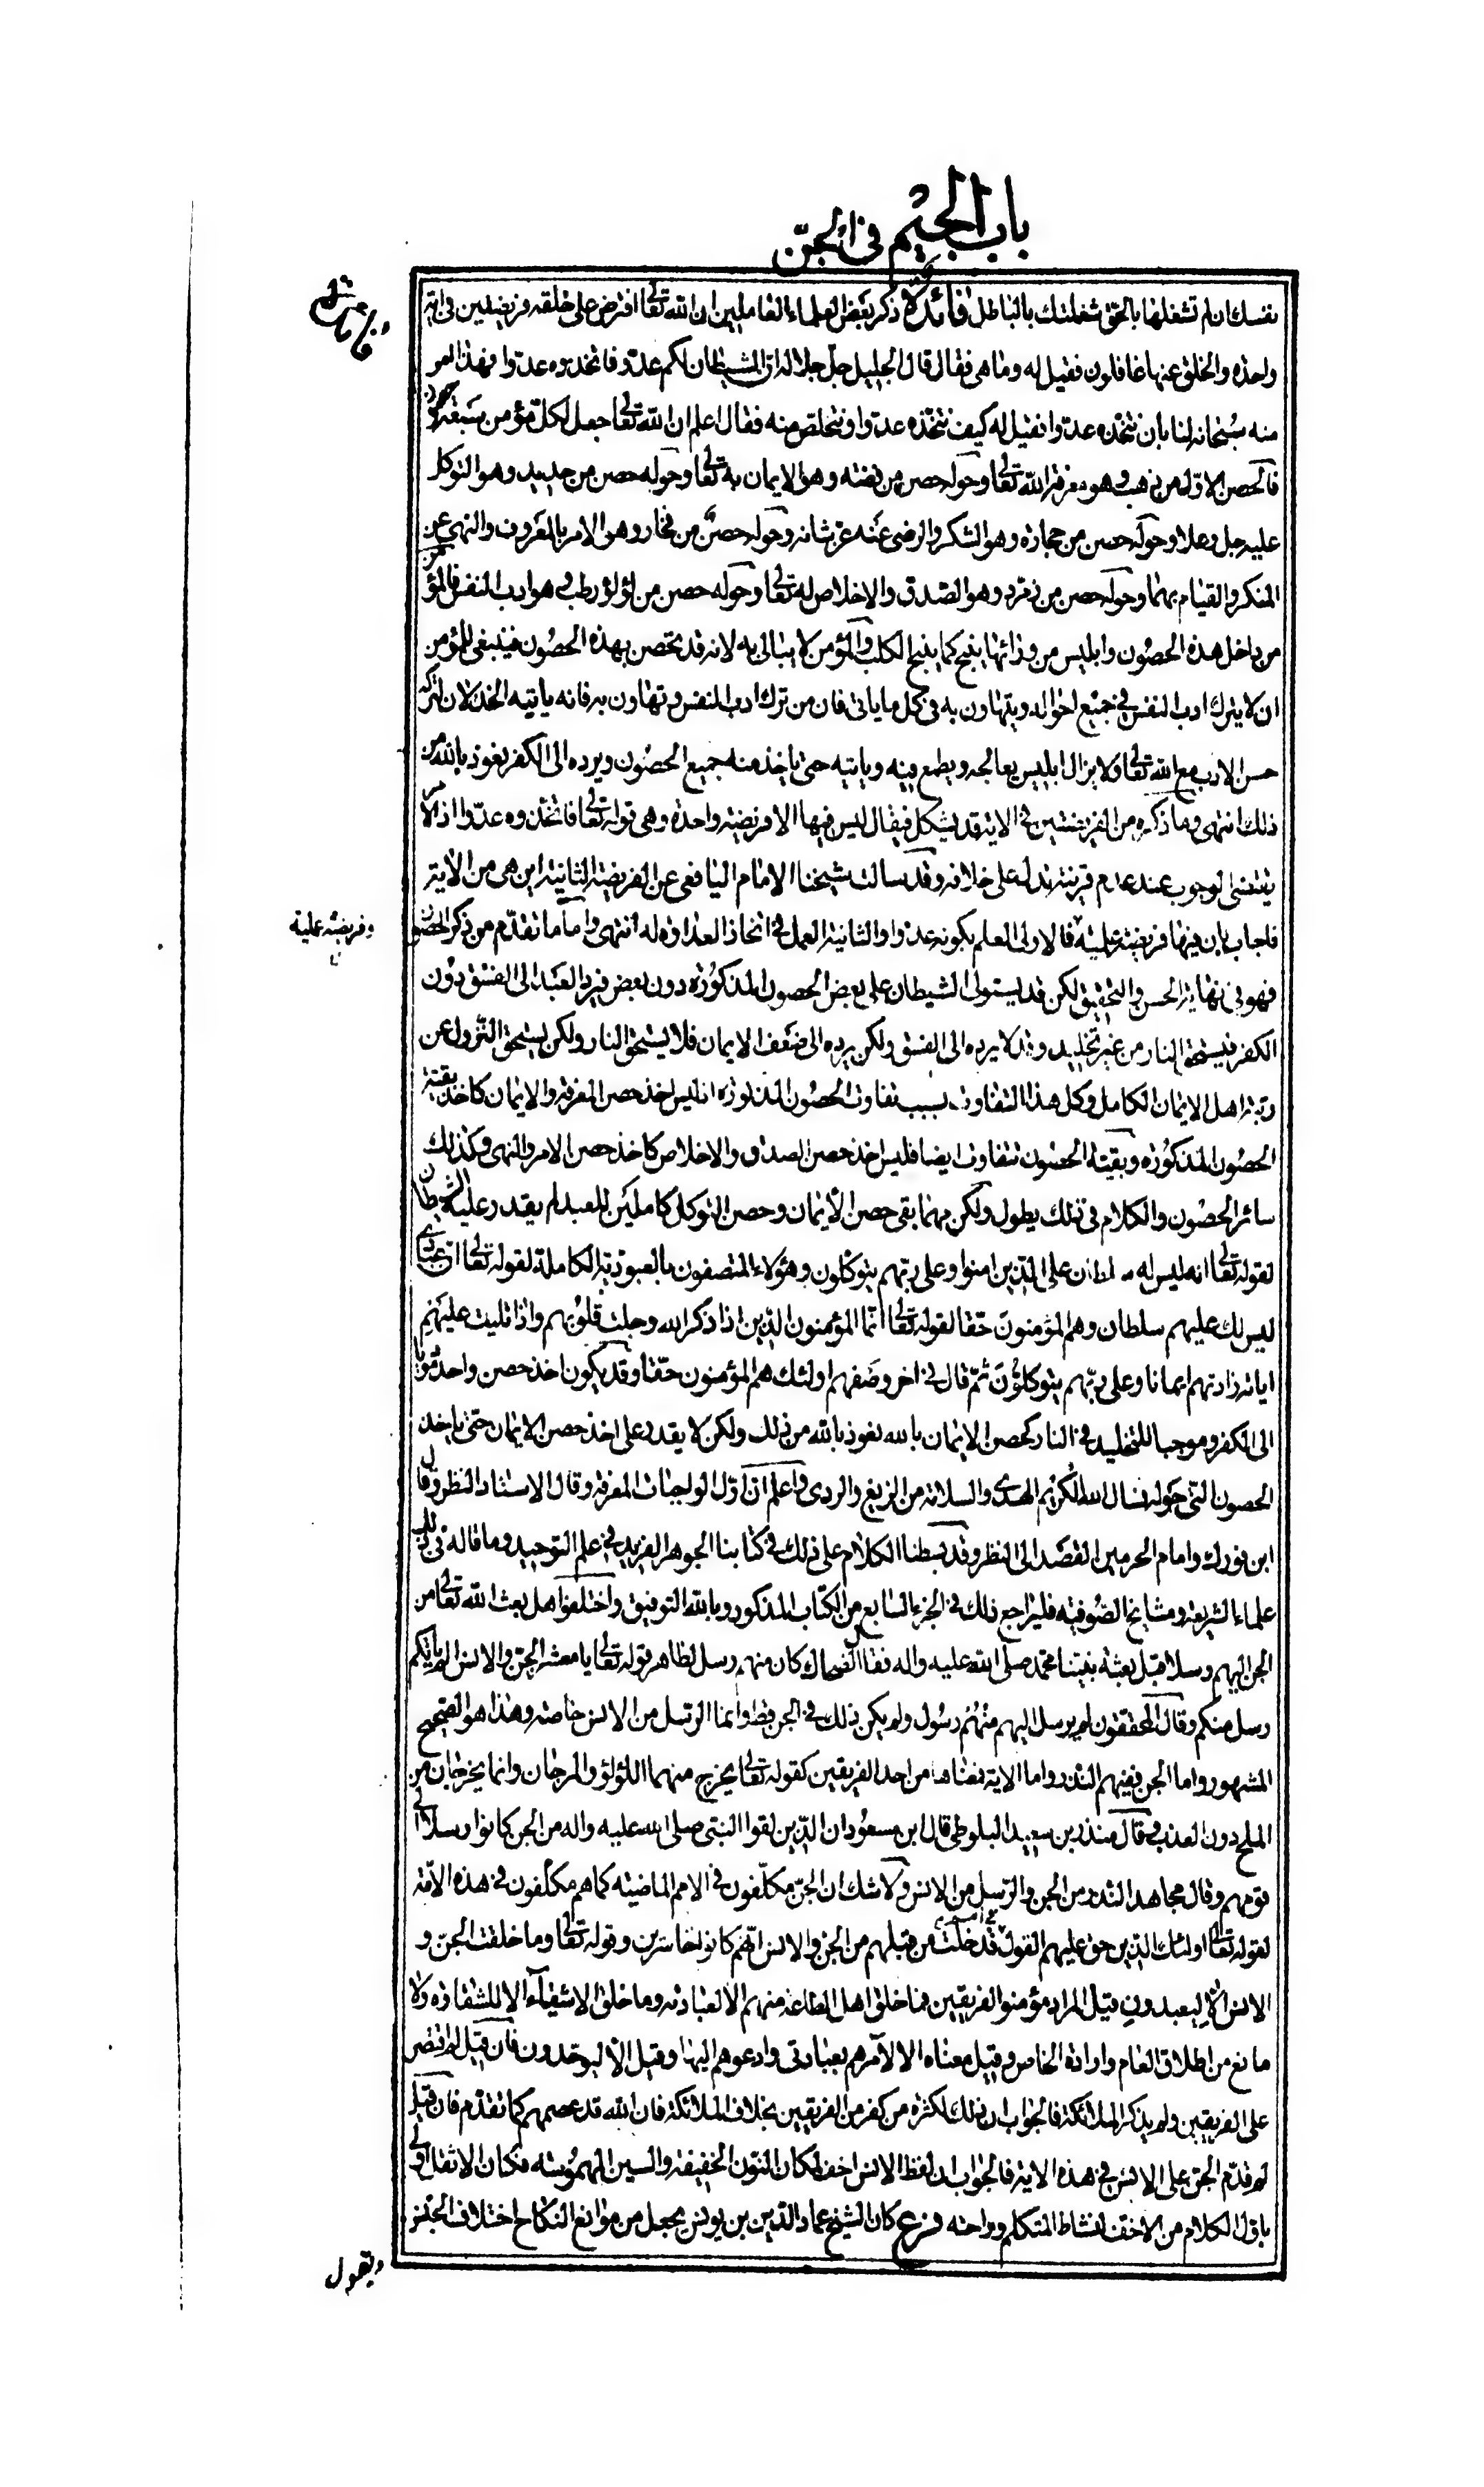 باب الجيم في الجن
نفسك ان لم تشغلها بالحق شغلتك بالباطل فائدة ذكر بعض العلماء العاملين ان الله تعالى افترض على خلقه فريضتين في اية
واحدة والخلق عنها غافلون فقيل له وما هي فقال قال الجليل جل جلاله ان الشيطان لكم عدو فاتخذوه عدوا فهذا امر
منه سبحانه لنا بان نتخذه عدوا فقيل له كيف نتخذه عدوا ونتخلص منه فقال اعلم ان الله تعالى جعل لكل مؤمن سبعة حصون
فالحصن الاول من ذهب وهو معرفة الله تعالى وحوله حصن من فضة وهو الايمان به تعالى وحوله حصن من حديد وهو التوكل
عليه جل وعلا وحوله حصن من حجارة وهو الشكر والرضى عنه عز شانه وحوله حصن من فخار وهو الامر بالمعروف والنهي عن
المنكر والقيام بهما وحوله حصن من زمرد وهو الصدق والاخلاص له تعالى وحوله حصن من لؤلؤ رطب وهو ادب النفس فالمؤمن
من داخل هذه الحصون وابليس من ورائها ينبح كما ينبح الكلب والمؤمن لا يبالي به لانه قد تحصن بهذه الحصون فينبغي للمؤمن
ان لا يترك ادب النفس في جميع احواله ويتهاون به في كل ما ياتي فان من ترك ادب النفس وتهاون به فانه ياتيه الخذلان لتركه
حسن الادب مع الله تعالى ولا يزال ابليس يعالجه ويطمع فيه وياتيه حتى ياخذ منه جميع الحصون ويرده الى الكفر نعوذ بالله من
ذلك انتهى وما ذكره من الفريضتين في الاية قد يشكل فيقال ليس فيها الا فريضة واحدة وهي قوله تعالى فاتخذوه عدوا اذ الامر
يقتضي الوجوب عند عدم قرينة تدل على خلافه وقد سالت شيخنا الامام اليافعي عن الفريضة الثانية اين هي من الاية
فاجاب بان فيها فريضة علمية فالاولى العلم بكونه عدوا والثانية العمل في اتخاذ العداوة له انتهى واما ما تقدم من ذكر الحصون
وفريضة عملية
فهو في نهاية الحسن والتحقيق لكن قد يستولي الشيطان على بعض الحصون المذكورة دون بعض فيرد العبد الى الفسق دون
الكفر فيستحق النار من غير تخليد وقد لا يرده الى الفسق ولكن يرده الى ضعف الايمان فلا يستحق النار ولكن يستحق النزول عن
رتبة اهل الايمان الكامل وكل هذا التفاوت بسبب تفاوت الحصون المذكورة اذ ليس اخذ حصن المعرفة والايمان كاخذ بقية
الحصون المذكورة وبقية الحصون تتفاوت ايضا فليس اخذ حصن الصدق والاخلاص كاخذ حصن الامر والنهي وكذلك
سائر الحصون والكلام في ذلك يطول ولكن مهما بقي حصن الايمان وحصن التوكل كاملين للعبد لم يقدر عليه الشيطان
لقوله تعالى انه ليس له سلطان على الذين امنوا وعلى ربهم يتوكلون وهؤلاء المتصفون بالعبودية الكاملة لقوله تعالى ان عبادي
ليس لك عليهم سلطان وهم المؤمنون حقا لقوله تعالى انما المؤمنون الذين اذا ذكر الله وجلت قلوبهم واذا تليت عليهم
اياته زادتهم ايمانا وعلى ربهم يتوكلون ثم قال في اخر وصفهم اولئك هم المؤمنون حقا وقد يكون اخذ حصن واحد مؤديا
الى الكفر وموجبا للتخليد في النار كحصن الايمان بالله نعوذ بالله من ذلك ولكن لا يقدر على اخذ حصن الايمان حتى ياخذ
الحصون التي حوله نسال الله الكريم الهدى والسلامة من الزيغ والردى واعلم ان اول الواجبات المعرفة وقال الاستاذ النظر وقال
ابن فورك وامام الحرمين القصد الى النظر وقد بسطنا الكلام على ذلك في كتابنا الجوهر الفريد في علم التوحيد وما قاله في ذلك
علماء الشريعة ومشايخ الصوفية فليراجع ذلك في الجزء السابع من الكتاب المذكور وبالله التوفيق واختلفوا هل بعث الله تعالى من
الجن اليهم رسلا قبل بعثة نبينا محمد صلى الله عليه واله فقال الضحاك كان منهم رسل لظاهر قوله تعالى يا معشر الجن والانس الم ياتكم
رسل منكم وقال المحققون لم يرسل اليهم منهم رسول ولم يكن ذلك في الجن قط وانما الرسل من الانس خاصة وهذا هو الصحيح
المشهور واما الجن ففيهم النذر واما الاية فمعناها من احد الفريقين كقوله تعالى يخرج منهما اللؤلؤ والمرجان وانما يخرجان من
الملح دون العذب وقال منذر بن سعيد البلوطي قال ابن مسعود ان الذين لقوا النبي صلى الله عليه واله من الجن كانوا رسلا الى
قومهم وقال مجاهد النذر من الجن والرسل من الانس ولا شك ان الجن مكلفون في الامم الماضية كما هم مكلفون في هذه الامة
لقوله تعالى اولئك الذين حق عليهم القول في امم قد خلت من قبلهم من الجن والانس انهم كانوا خاسرين وقوله تعالى وما خلقت الجن و
الانس الا ليعبدون قيل المراد مؤمنو الفريقين فما خلق اهل الطاعة منهم الا لعبادته وما خلق الاشقياء الا للشقاوة ولا
مانع من اطلاق العام وارادة الخاص وقيل معناه الا لآمرهم بعبادتي وادعوهم اليها وقيل الا ليوحدون فان قيل لم اقتصر
على الفريقين ولم يذكر الملائكة فالجواب ان ذلك لكثرة من كفر من الفريقين بخلاف الملائكة فان الله قد عصمهم كما تقدم فان قيل
لم قدم الجن على الانس في هذه الاية فالجواب ان لفظ الانس اخف لمكان النون الخفيفة والسين المهموسة فكان الاثقل اولى
باول الكلام من الاخف لنشاط المتكلم وراحته فرع كان الشيخ عماد الدين بن يونس يجعل من موانع النكاح اختلاف الجنس
ويقول